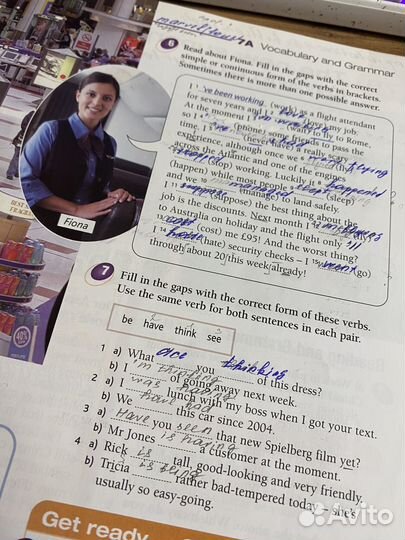 7A Vocabulary and Grammar
6 Read about Fiona. Fill in the gaps with the correct
simple or continuous form of the verbs in brackets.
Sometimes there is more than one possible answer.
I 1 've been working (work) as a flight attendant
for seven years and I 2 love (love) my job.
At the moment I 3 (wait) to fly to Rome,
so I 4 (phone) some friends to pass the
time. I 5 've (never have) a really scary
experience, although once we 6 flying
across the Atlantic and one of the engines
(stop) working. Luckily, it 8 happened
(happen) while most people 9 (sleep)
and we 10 managed (manage) to land safely.
I 11 suppose (suppose) the best thing about the
job is the discounts. Next month I 12 (fly)
to Australia on holiday and the flight only
13 cost (cost) me £95! And the worst thing?
I 14 hate (hate) security checks – I 15 went (go)
through about 20 this week already!
Fiona
7 Fill in the gaps with the correct form of these verbs.
Use the same verb for both sentences in each pair.
be have think see
1 a) What are you thinking of this dress?
b) I 'm thinking of going away next week.
2 a) I was having lunch with my boss when I got your text.
b) We have had this car since 2004.
3 a) Have you seen that new Spielberg film yet?
b) Mr Jones is having a customer at the moment.
4 a) Rick is tall, good-looking and very friendly.
b) Tricia is being rather bad-tempered today – she's
usually so easy-going.
Get ready
40%
Avito